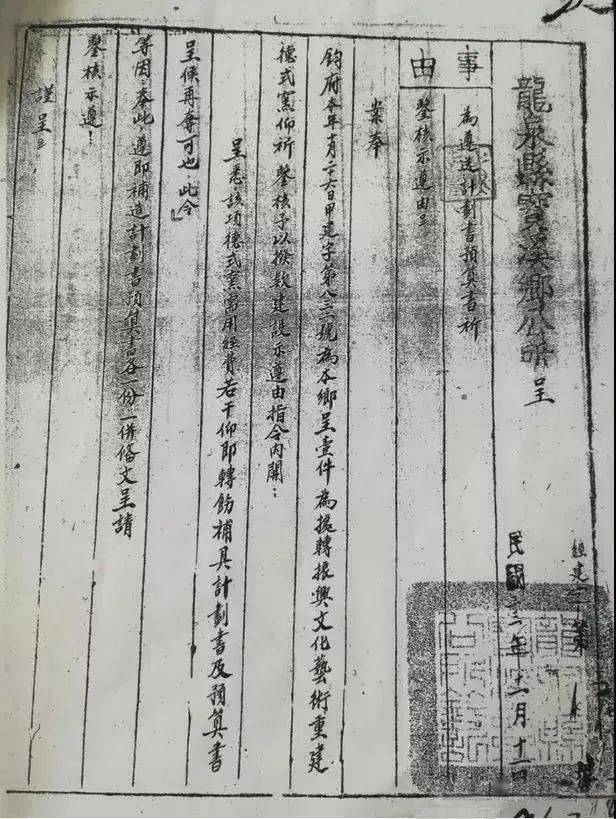 龍泉縣寶溪鄉公所呈
經建字第
民國三三年十二月十二日
事由
為遵造計劃書預算書祈
鑒核示遵由
案奉
鈞府本年十月二十六日甲建字第八三一號為本鄉呈壹件為援轉振興文化藝術重建
德式窯仰祈鑒核予以撥款建設示遵由指令內開：
呈悉該項德式窯需用經費若干仰即轉飭補具計劃書及預算書
呈候再奪可也此令』
等因奉此遵即補造計劃書預算書各一份一併備文呈請
鑒核示遵！
謹呈